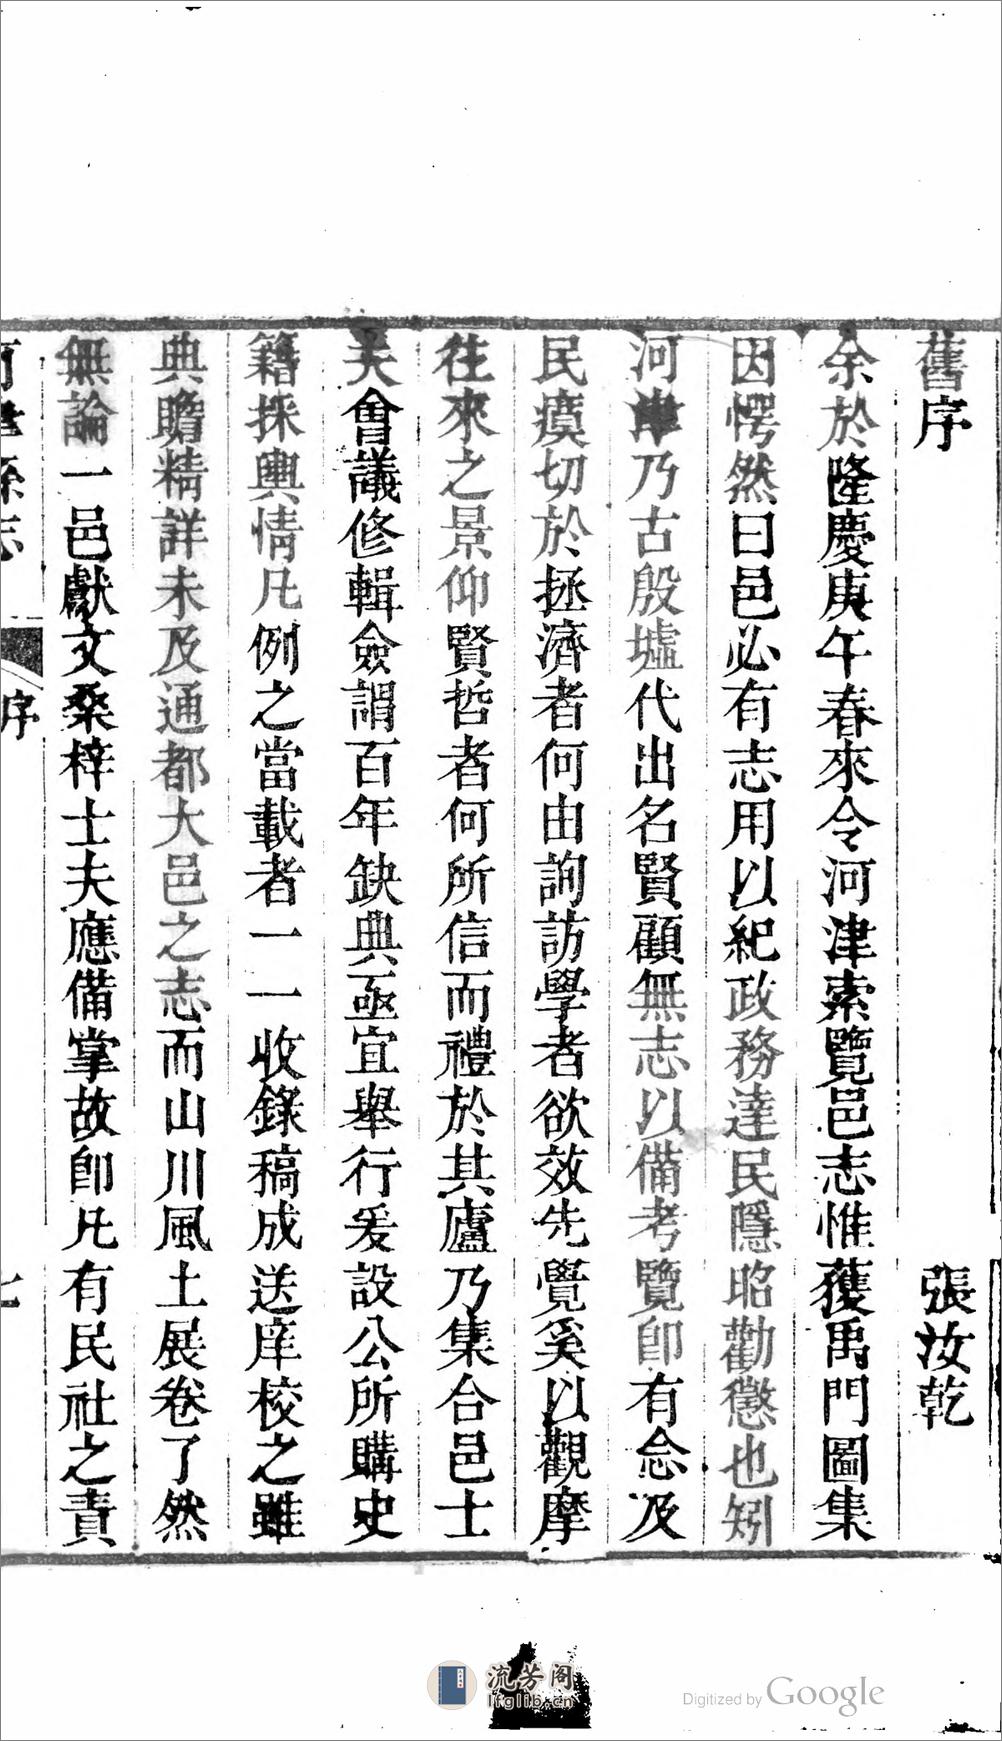 舊序 張汝乾
余於隆慶庚午春來令河津索覽邑志惟獲禹門圖集
因愕然曰邑必有志用以紀政務達民隱昭勸懲也矧
河津乃古殷墟代出名賢顧無志以備考覽卽有念及
民瘼切於拯濟者何由詢訪學者欲效先覺奚以觀摩
往來之景仰賢哲者何所信而禮於其廬乃集合邑士
夫會議修輯僉謂百年缺典亟宜舉行爰設公所購史
籍採輿情凡例之當載者一一收錄稿成送庠校之雖
典贍精詳未及通都大邑之志而山川風土展卷了然
無論一邑獻文桑梓士夫應備掌故卽凡有民社之責
河津縣志 序 七
流芳阁
lfglib.cn
Digitized by Google